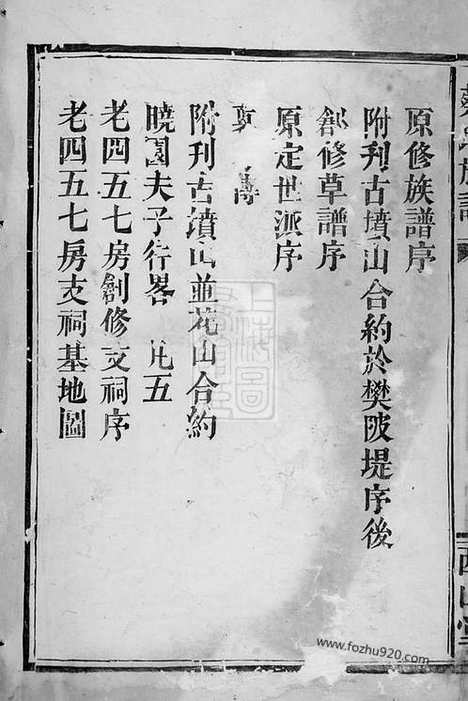 原修族譜序
附刊古墳山合約於樊陂堤序後
創修草譜序
原定世派序
附刊古墳山並花山合約
曉園夫子行畧 凡五
老四五七房創修支祠序
老四五七房支祠基地圖
族譜
www.fozhu920.com